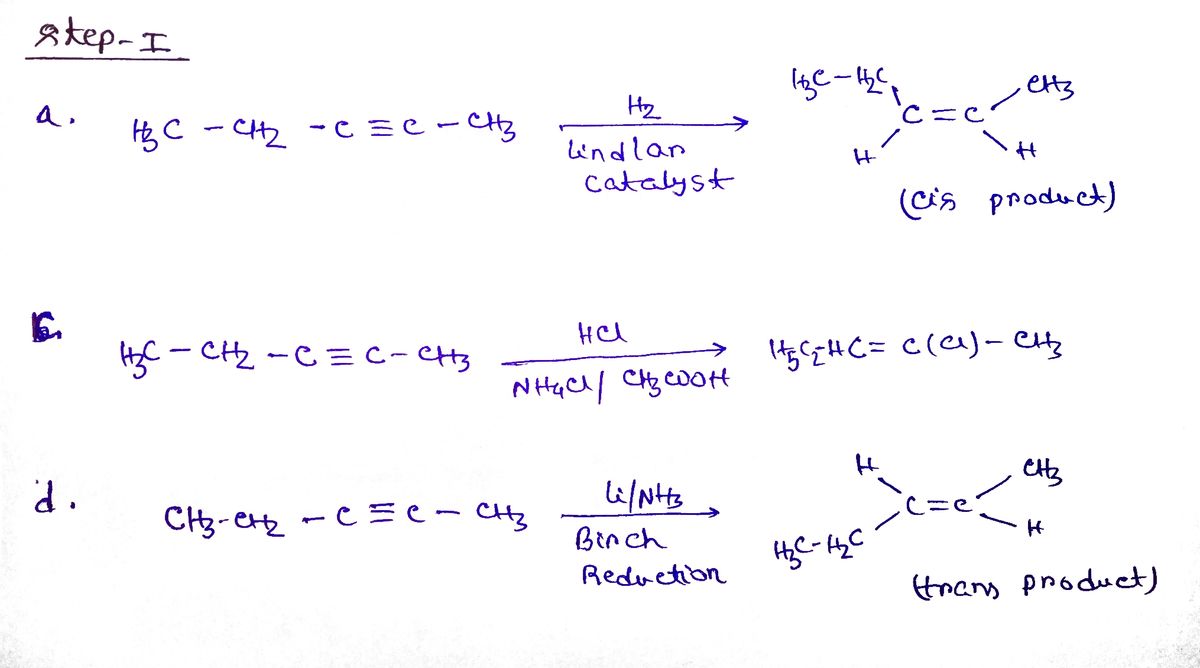 Step-I
a. H3C - CH2 - C ≡ C - CH3 H2 Lindlar catalyst H3C-H2C H C=C CH3 H
(cis product)
c. H3C - CH2 - C ≡ C - CH3 HCl NH4Cl/ CH3COOH H5C2-HC= C(Cl)- CH3
d. CH3-CH2 - C ≡ C - CH3 Li/NH3 Birch Reduction H H3C-H2C C=C CH3 H
(trans product)